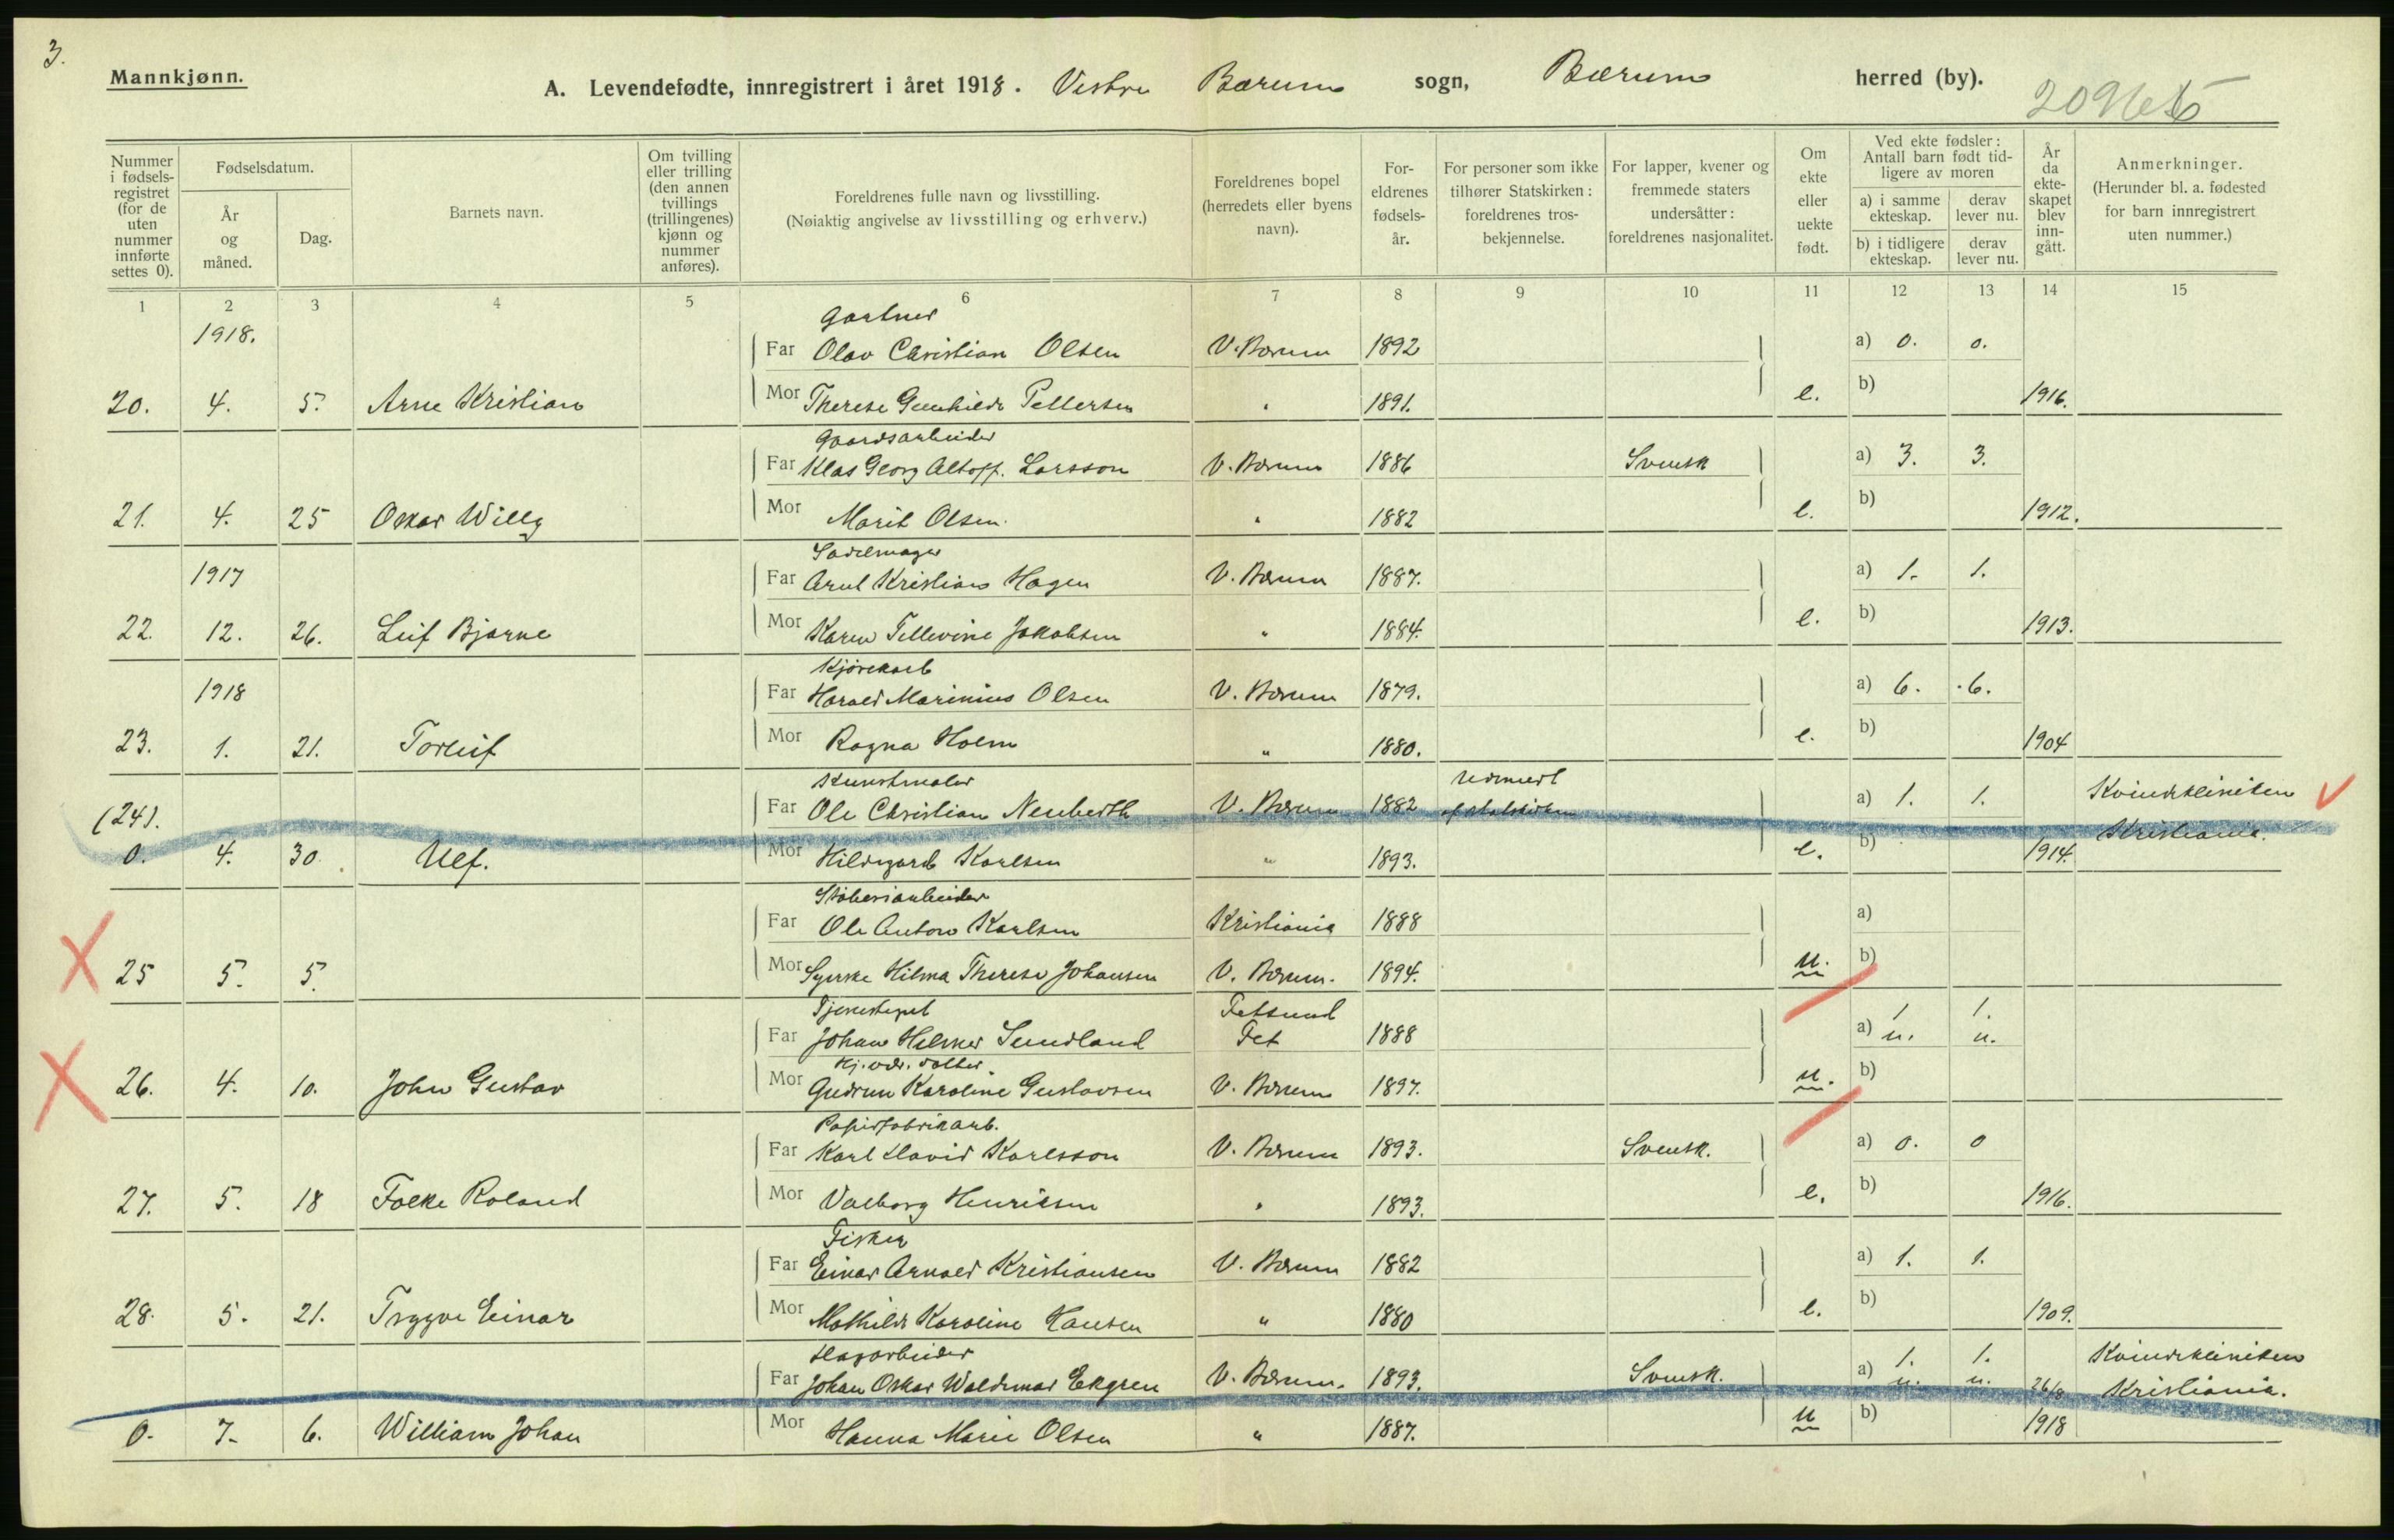 3.
Mannkjønn.
A. Levendefødte, innregistrert i året 1918. Vestre Bærum sogn, Bærum herred (by).
Nummer i fødselsregistret (for de uten nummer innførte settes 0).
Fødselsdatum.
År og måned.
Dag.
Barnets navn.
Om tvilling eller trilling (den annen tvillings (trillingenes) kjønn og nummer anføres).
Foreldrenes fulle navn og livsstilling.
(Nøiaktig angivelse av livsstilling og erhverv.)
Foreldrenes bopel (herredets eller byens navn).
Foreldrenes fødselsår.
For personer som ikke tilhører Statskirken: foreldrenes trosbekjennelse.
For lapper, kvener og fremmede staters undersåtter: foreldrenes nasjonalitet.
Om ekte eller uekte født.
Ved ekte fødsler: Antall barn født tidligere av moren
a) i samme ekteskap.
derav lever nu.
b) i tidligere ekteskap.
derav lever nu.
År da ekteskapet blev inngått.
Anmerkninger.
(Herunder bl. a. fødested for barn innregistrert uten nummer.)
1 2 3 4 5 6 7 8 9 10 11 12 13 14 15
1918.
Gartner
Far Olav Christian Olsen V. Bærum 1892 a) 0. 0.
20. 4. 5. Arne Kristian Mor Therese Gunhilde Pettersen " 1891. e. b) 1916.
Gaardsarbeider
Far Klas Georg Altoff. Larsson V. Bærum 1886 Svensk a) 3. 3.
21. 4. 25 Oskar Willy Mor Marit Olsen. " 1882 e. b) 1912.
1917
Sadelmager
Far Arnt Kristian Hagen V. Bærum 1887. a) 1. 1.
22. 12. 26. Leif Bjarne Mor Karen Tellevine Jakobsen " 1884. e. b) 1913.
1918
Kjørekarl
Far Harald Marinius Olsen V. Bærum 1879. a) 6. 6.
23. 1. 21. Torleif Mor Ragna Holm " 1880. e. b) 1904
Kunstmaler
(24). Far Ole Christian Neuberth V. Bærum 1882 Udmeldt af statskirken a) 1. 1. Kvindekliniken Kristiania.
0. 4. 30. Ulf. Mor Hildegard Karlsen " 1893. e. b) 1914.
Støberiarbeider
Far Ole Anton Karlsen Kristiania 1888 a)
25 5. 5. Mor Syerske Hilma Therese Johansen V. Bærum. 1894. u. b)
Fetsund
Far Johan Helmer Sundland Fet 1888 a) 1 u. 1. u.
26. 4. 10. John Gustav Mor Gudrun Karoline Gustavsen V. Bærum 1897. u. b)
Papirfabrikarb.
Far Karl David Karlsson V. Bærum 1893. Svensk. a) 0. 0
27. 5. 18 Folke Roland Mor Valborg Henriksen " 1893. e. b) 1916.
Fisker
Far Einar Arnold Kristiansen V. Bærum 1882 a) 1. 1.
28. 5. 21. Tryggve Einar Mor Mathilde Karoline Hansen " 1880 e. b) 1909.
Dagarbeider
Far Johan Oskar Waldemar Ekgren V. Bærum. 1893. Svensk. a) 1. u. 1. u. 26/8 Kvindekliniken Kristiania.
0. 7. 6. William Johan Mor Hanna Marie Olsen " 1887. u b) 1918